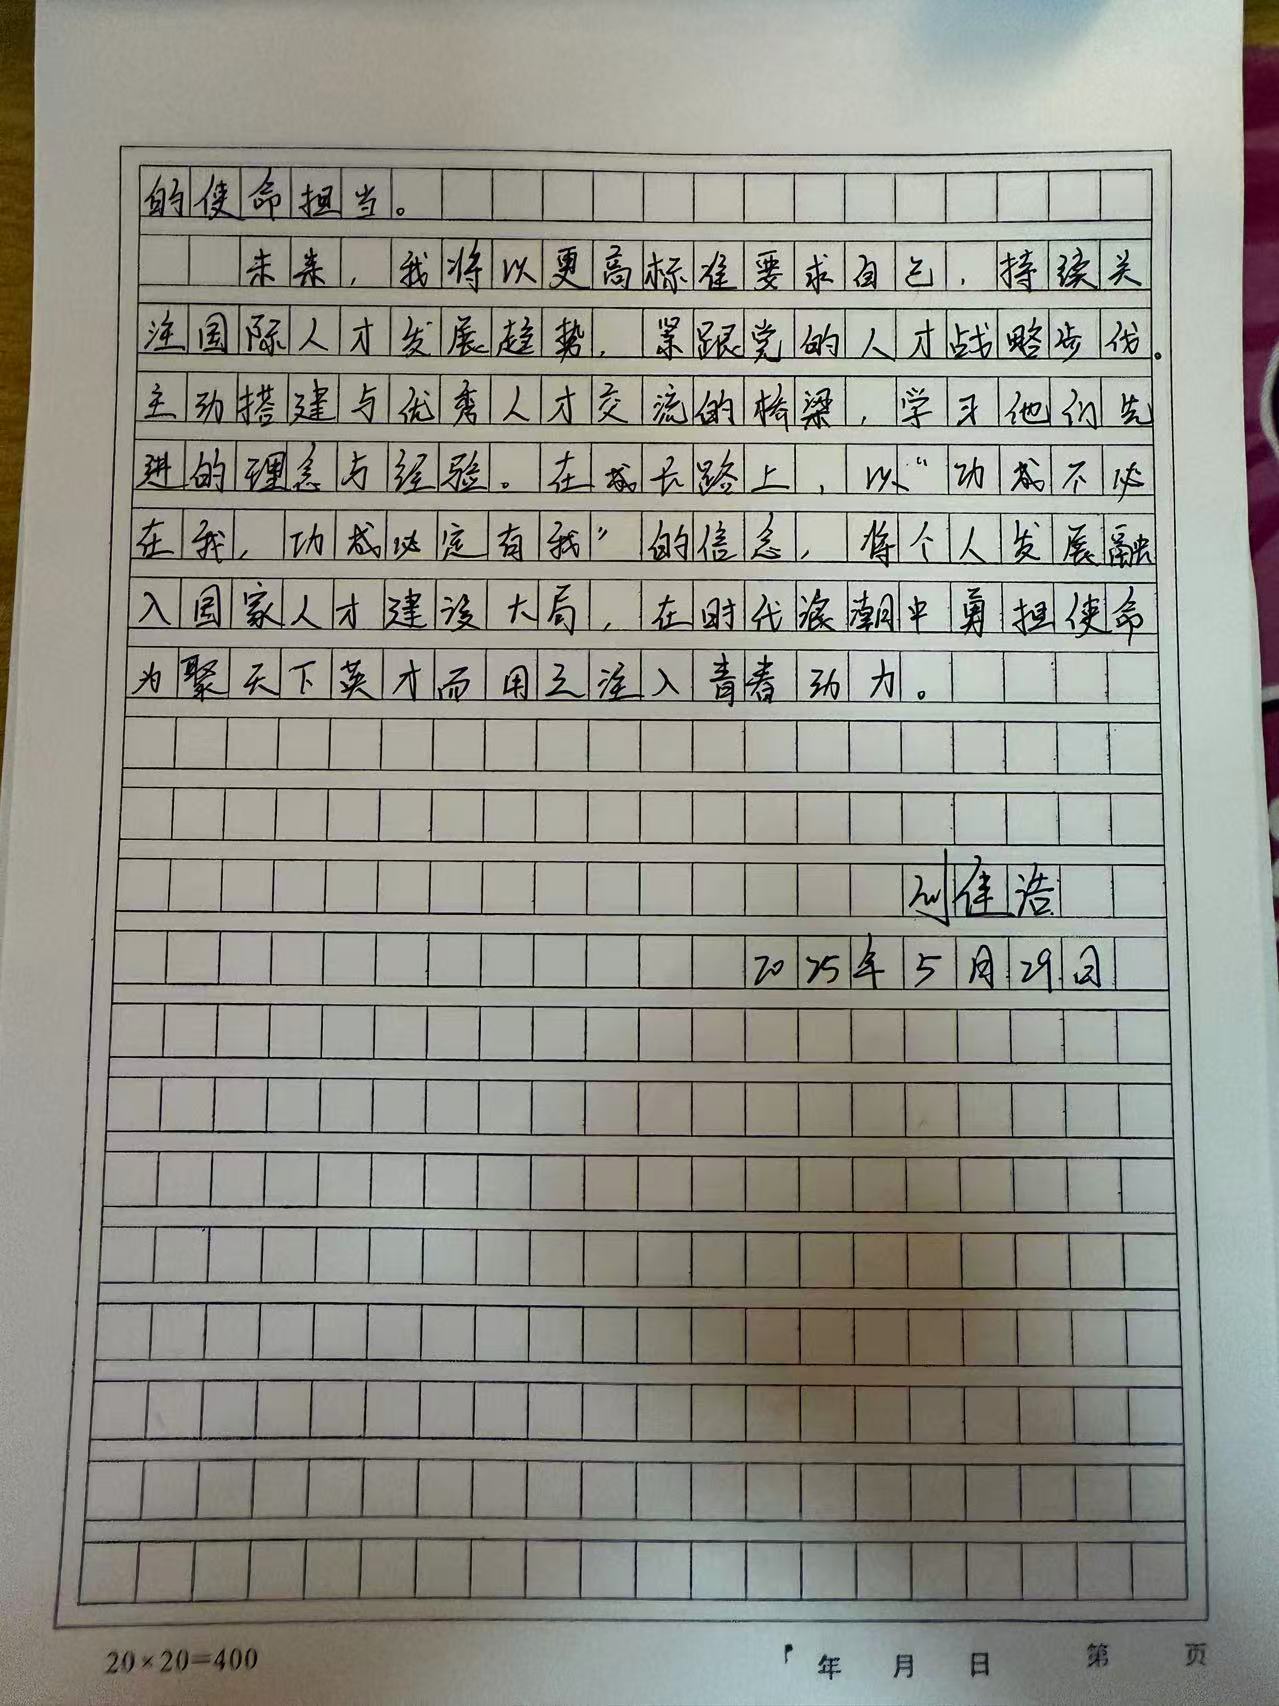 的使命担当。
未来，我将以更高标准要求自己，持续关
注国际人才发展趋势，紧跟党的人才战略步伐。
主动搭建与优秀人才交流的桥梁，学习他们先
进的理念与经验。在成长路上，以“功成不必
在我，功成必定有我”的信念，将个人发展融
入国家人才建设大局，在时代浪潮中勇担使命
为聚天下英才而用之注入青春动力。
刘佳浩
2025年5月29日
20×20=400
年 月 日 第 页